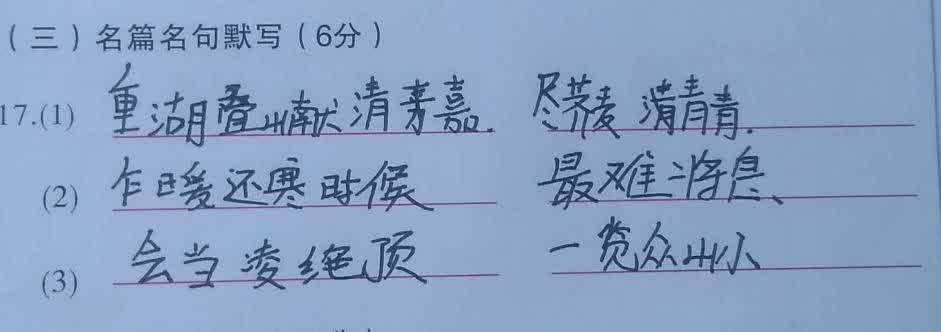 （三）名篇名句默写（6分）
17.(1) 重湖叠巘清嘉. 尽荠麦满青青.
(2) 乍暖还寒时候 最难将息、
(3) 会当凌绝顶 一览众山小